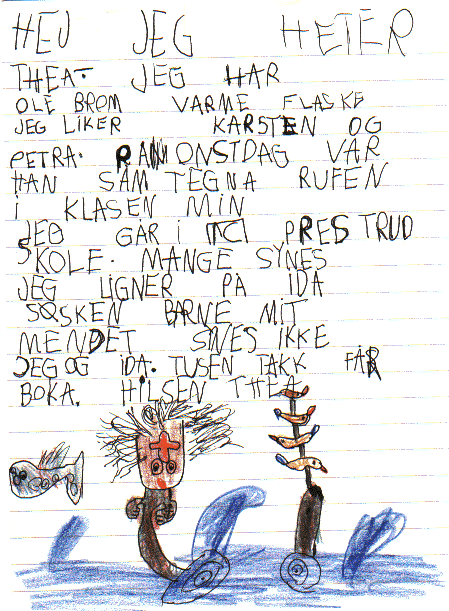 HEJ JEG HETER
THEA. JEG HAR
OLE BRØM VARME FLASKE
JEG LIKER KARSTEN OG
PETRA. ONSTDAG VAR
HAN SÅM TEGNA RUFEN
I KLASEN MIN
JEG GÅR I PRESTRUD
SKOLE. MANGE SYNES
JEG LIGNER PÅ IDA
SØSKEN BARNE MIT
MENDET SINES IKKE
JEG OG IDA. TUSEN TAKK FÅR
BOKA. HILSEN THEA